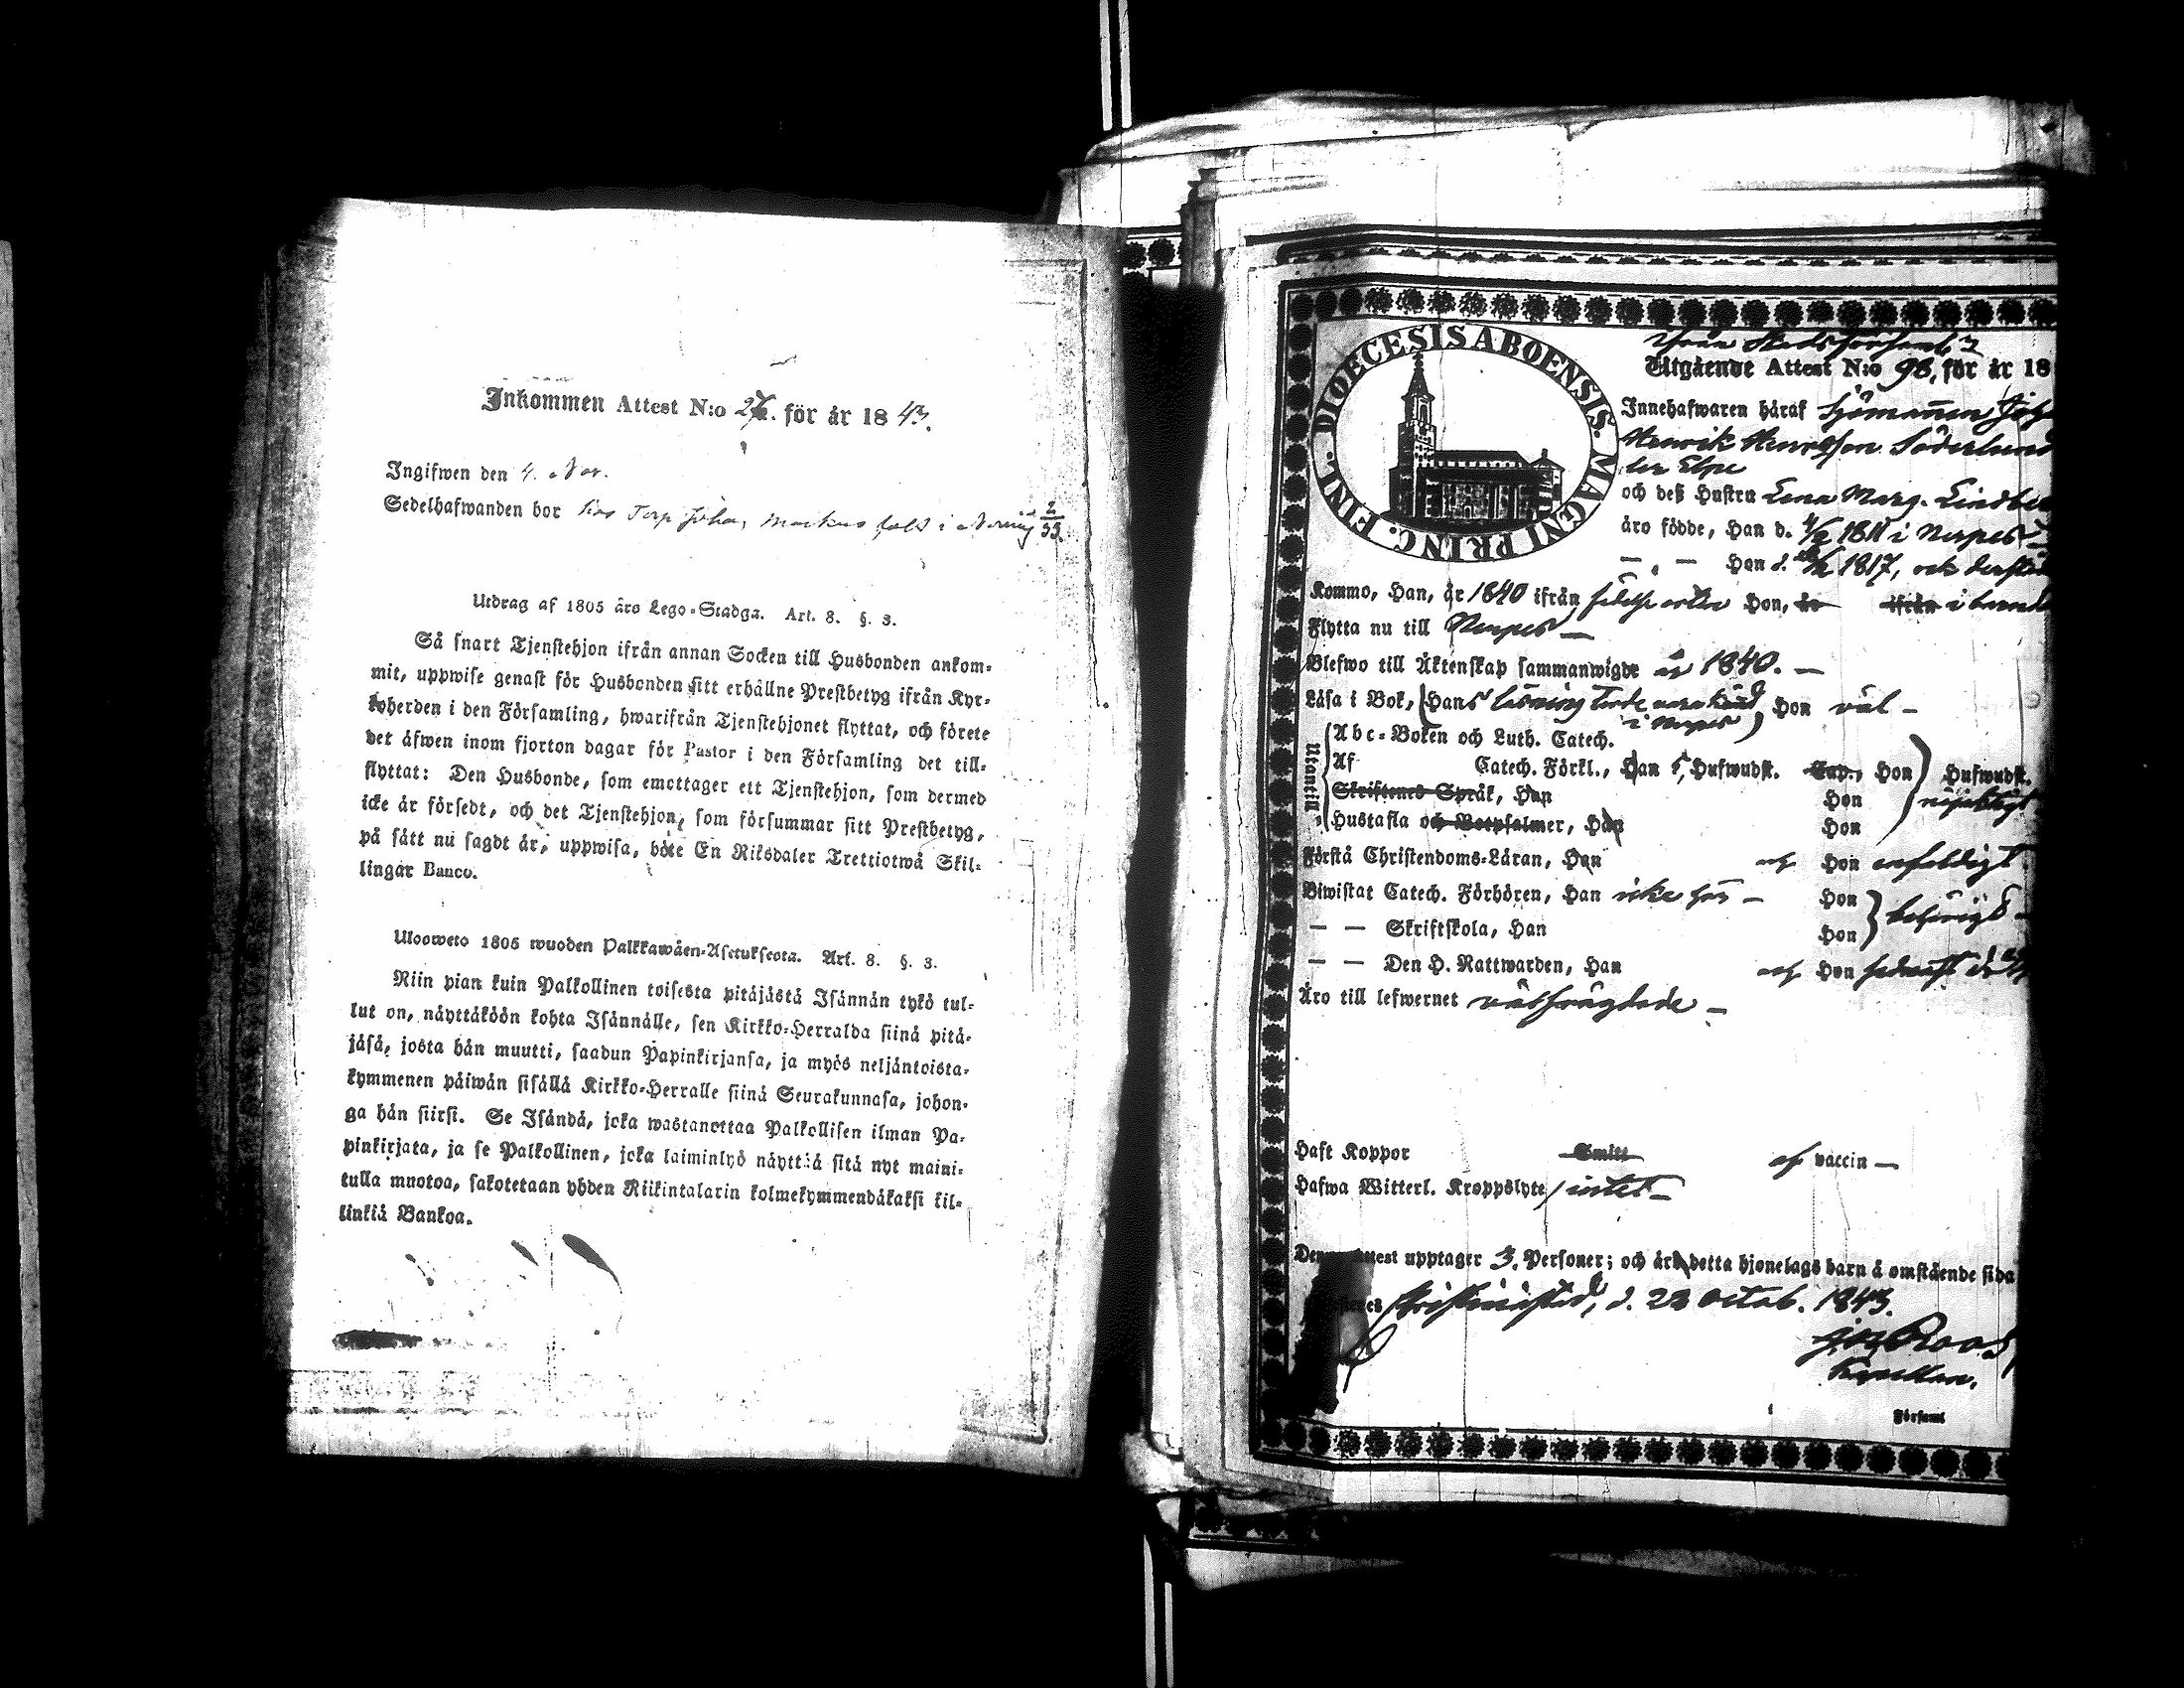 Inkommen Attest N:o 27. för år 1843.
Ingifwen den 4. Nov.
Sedelhafwanden bor hos Torp Joha, Markus i
Utdrag af 1805 års Lego-Stadga. Art. 8. §. 3.
Så snart Tjenstehjon ifrån annan Socken till Husbonden ankom-
mit, uppwise genast för Husbonden sitt erhållne Prestbetyg ifrån Kyr-
koherden i den Församling, hwarifrån Tjenstehjonet flyttat, och förete
det äfwen inom fjorton dagar för Pastor i den Församling det till-
flyttat: Den Husbonde, som emottager ett Tjenstehjon, som dermed
icke är försedt, och det Tjenstehjon, som försummar sitt Prestbetyg,
på sätt nu sagdt är, uppwisa, böte En Riksdaler Trettiotwå Skil-
lingar Banco.
Ulosweto 1805 wuoden Palkkawäen-Asetuksesta. Art. 8. §. 3.
Niin pian kuin Palkollinen toisesta pitäjästä Isännän tykö tul-
lut on, näyttäköön kohta Isännälle, sen Kirkko-Herralda siinä pitä-
jäsä, josta hän muutti, saadun Papinkirjansa, ja myös neljäntoista-
kymmenen päiwän sisällä Kirkko-Herralle siinä Seurakunnasa, johon-
ga hän siirsi. Se Isändä, joka wastanottaa Palkollisen ilman Pa-
pinkirjata, ja se Palkollinen, joka laiminlyö näyttää sitä nyt maini-
tulla muotoa, sakotetaan yhden Riikintalarin kolmekymmendäkaksi kil-
linkiä Bankoa.
DIOECESIS ABOENSIS. MAGNI PRINC. FINL.
Utgående Attest N:o 98, för år 18
Innehafwaren häraf Sjömannen Joh
Henrik Henriksson Söderlund
och deß Hustru Lena Marg. Lindbe
äro födde, Han d. 1811 i Nerpes
— — Hon d. 1817, och
Kommo, Han, år 1840 ifrån födelse orten Hon, år ifrån i
Flytta nu till Nerpes —
Blefwo till Äktenskap sammanwigde år 1840. —
Läsa i Bok, Hans läsning torde vara känd i Nerpes Hon väl —
Utantill
Abc-Boken och Luth. Catech.
Af Catech. Förkl., Han 5, Hufwudst. Cap., Hon Hufwudst.
Skriftenes Språk, Han Hon nöjaktigt
Hustafla och Botpsalmer, Han Hon
Förstå Christendoms-Läran, Han och Hon enfaldigt
Biwistat Catech. Förhören, Han icke här — Hon
— — Skriftskola, Han Hon behörigt —
— — Den H. Nattwarden, Han och Hon sednast d.
Äro till lefwernet välfrägdade —
Haft Koppor Smitt af vaccin —
Hafwa Witterl. Kroppslyte, intet —
upptager 3. Personer; och äro detta hjonelags barn å omstående sida
Christinestad, d. 23 Octob. 1843.
Roos
Kapellan.
Församl